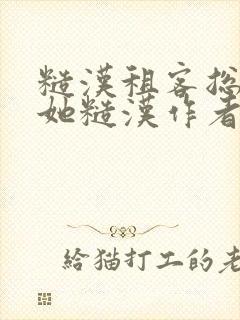 糙漢租客总
她糙漢作者
給猫打工的老